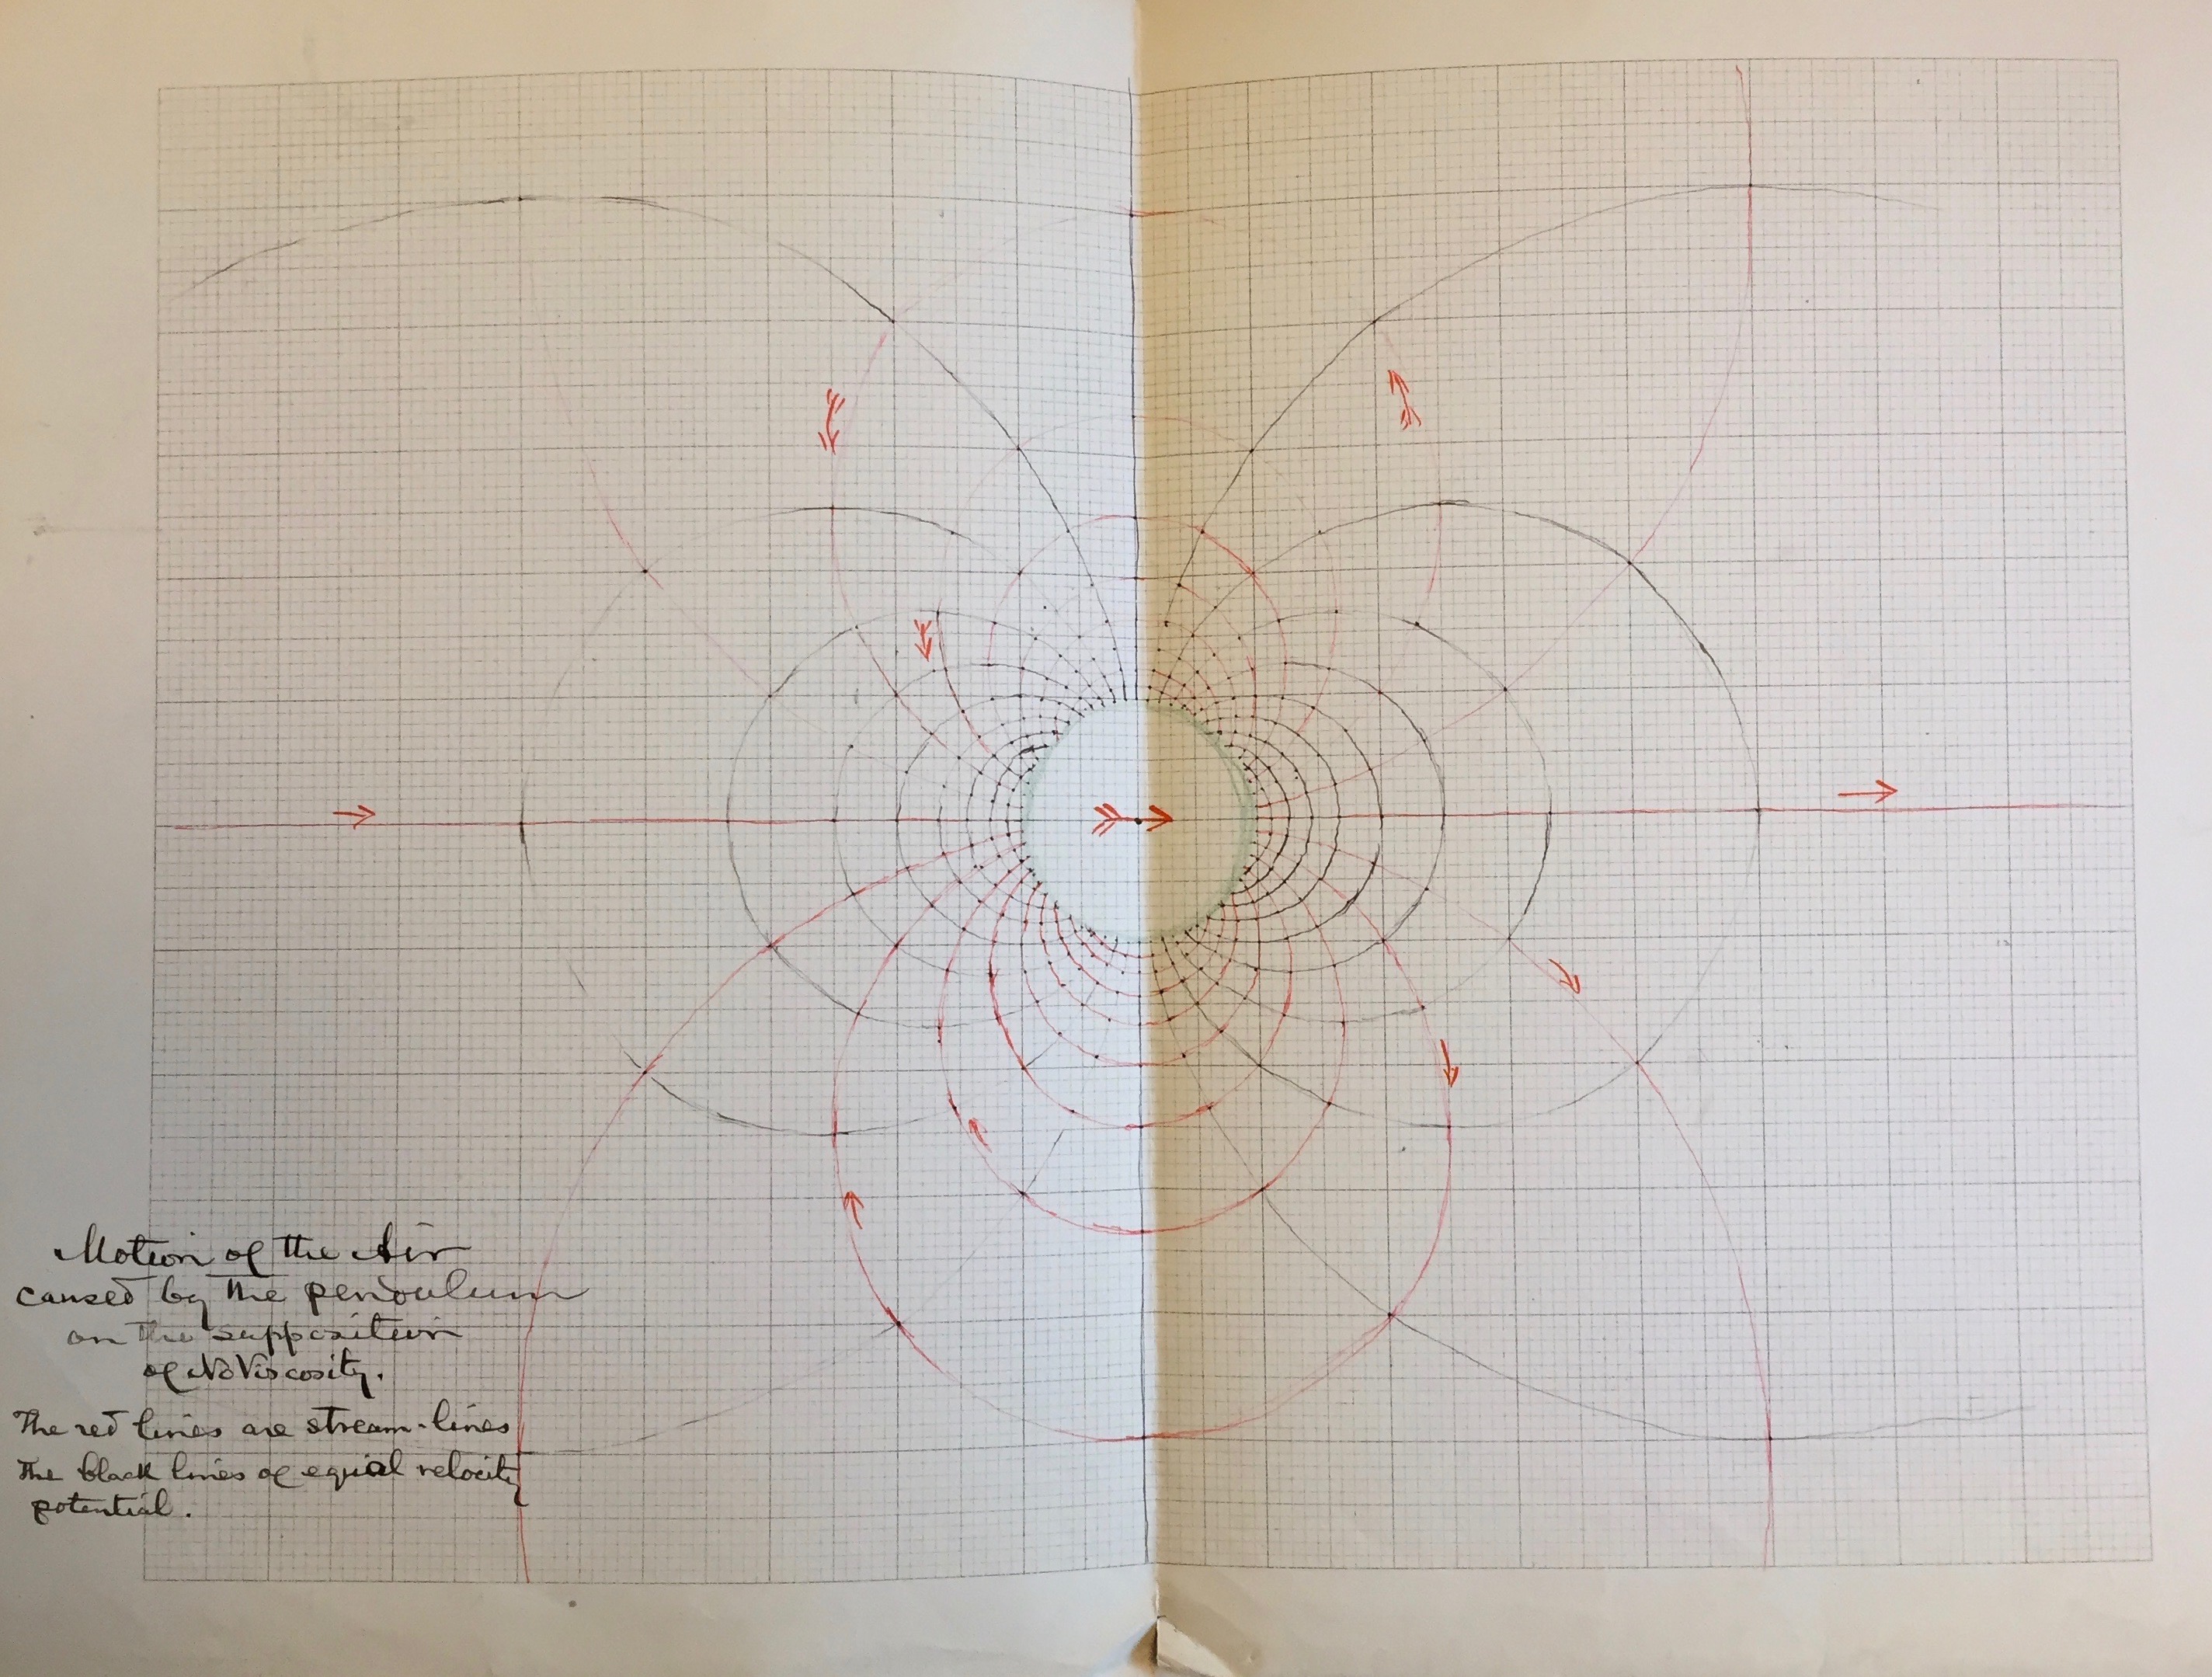 Motion of the Air
caused by the pendulum
on the supposition
of No Viscosity.
The red lines are stream-lines
The black lines of equal velocity
potential.